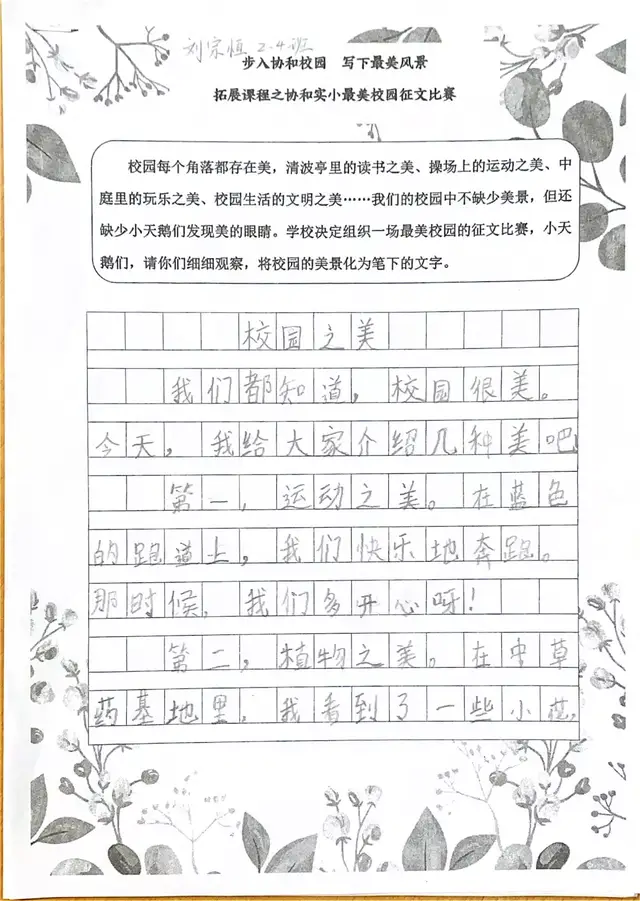 刘宗恒 2.4班
步入协和校园 写下最美风景
拓展课程之协和实小最美校园征文比赛
校园每个角落都存在美，清波亭里的读书之美、操场上的运动之美、中
庭里的玩乐之美、校园生活的文明之美……我们的校园中不缺少美景，但还
缺少小天鹅们发现美的眼睛。学校决定组织一场最美校园的征文比赛，小天
鹅们，请你们细细观察，将校园的美景化为笔下的文字。
校园之美
我们都知道，校园很美。
今天，我给大家介绍几种美吧
第一，运动之美。在蓝色
的跑道上，我们快乐地奔跑。
那时候，我们多开心呀！
第二，植物之美。在中草
药基地里，我看到了一些小花，